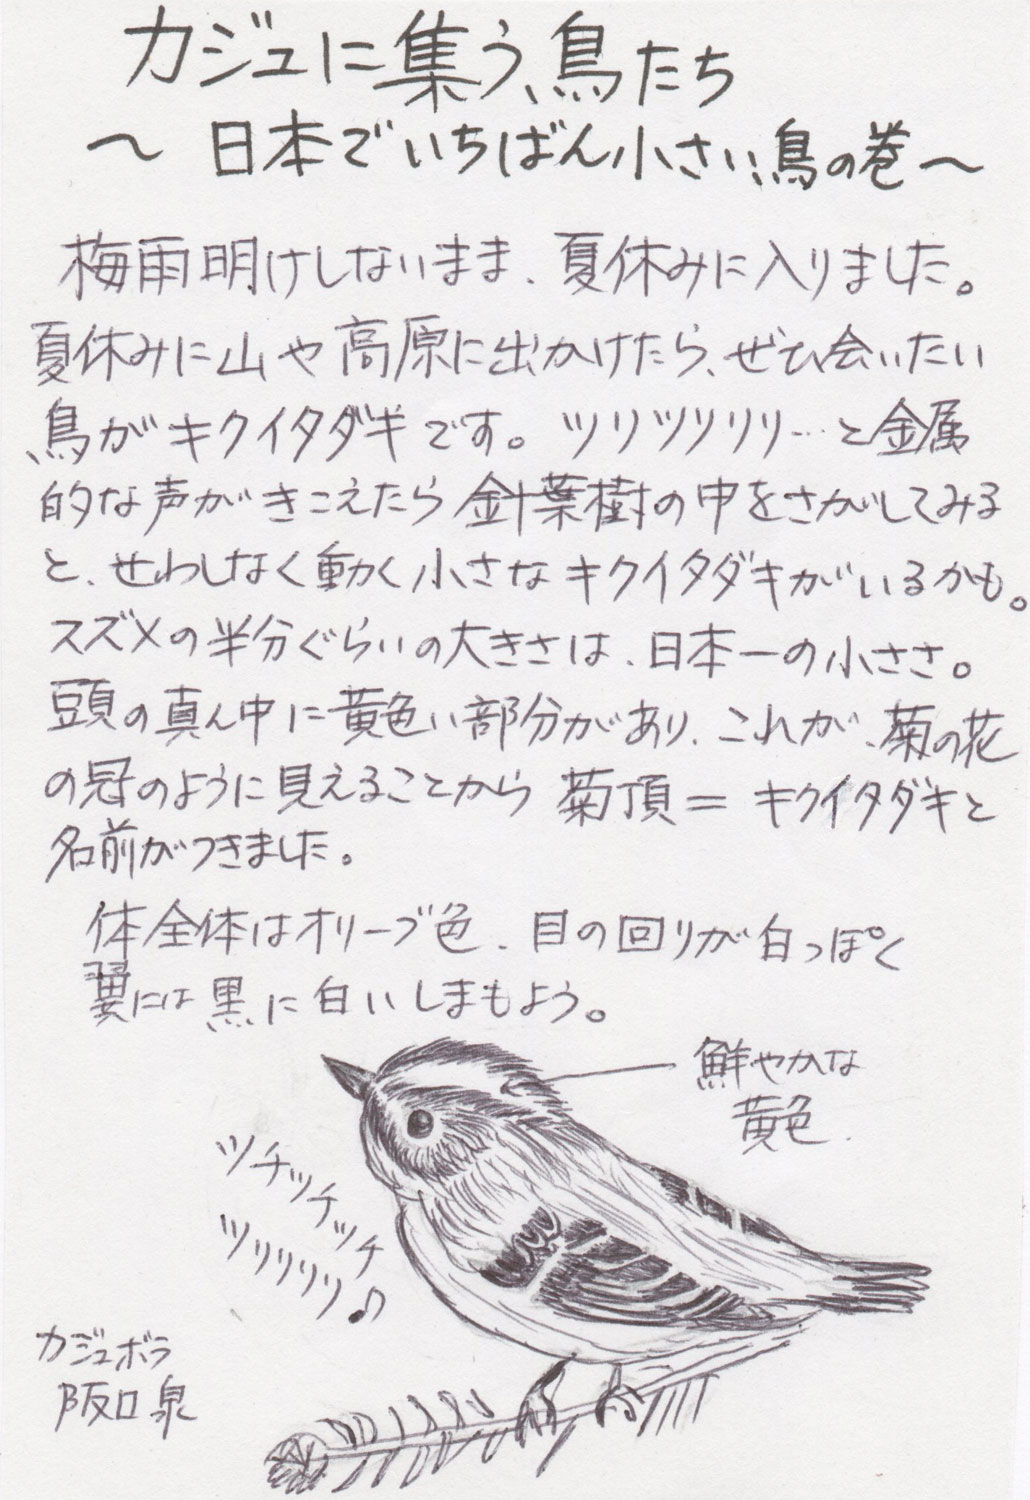 カジュに集う、鳥たち
～ 日本でいちばん小さい鳥の巻～
梅雨明けしないまま、夏休みに入りました。
夏休みに山や高原に出かけたら、ぜひ会いたい
鳥がキクイタダキです。ツリツリリリ…と金属
的な声がきこえたら針葉樹の中をさがしてみる
と、せわしなく動く小さなキクイタダキがいるかも。
スズメの半分ぐらいの大きさは、日本一の小ささ。
頭の真ん中に黄色い部分があり、これが、菊の花
の冠のように見えることから 菊頂＝キクイタダキと
名前がつきました。
体全体はオリーブ色、目の回りが白っぽく
翼には黒に白いしまもよう。
鮮やかな
黄色.
ツチッチッチ
ツリリリリ♪
カジュボラ
阪口泉